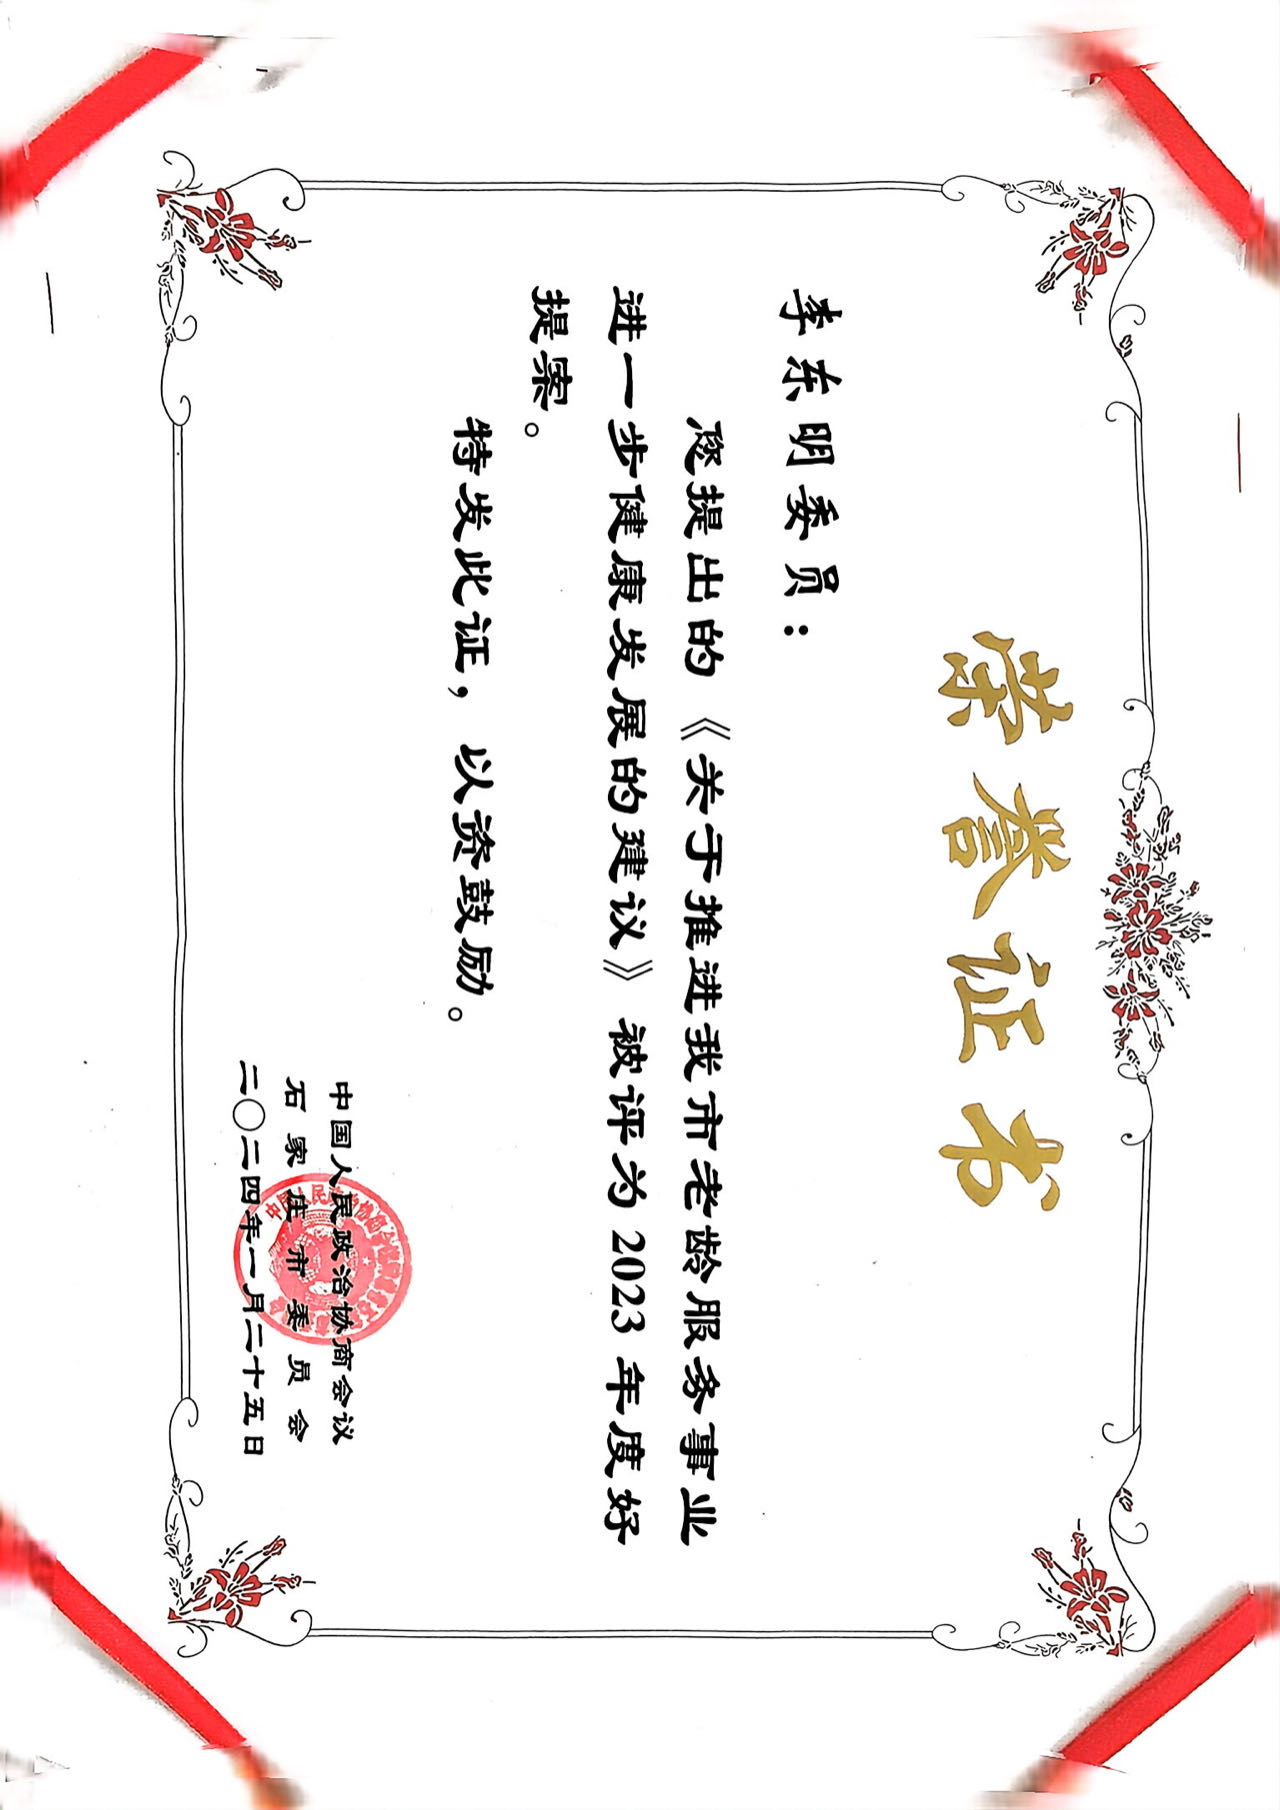 荣誉证书
李东明委员：
您提出的《关于推进我市老龄服务事业
进一步健康发展的建议》被评为2023年度好
提案。
特发此证，以资鼓励。
中国人民政治协商会议
石家庄市委员会
二〇二四年一月二十五日